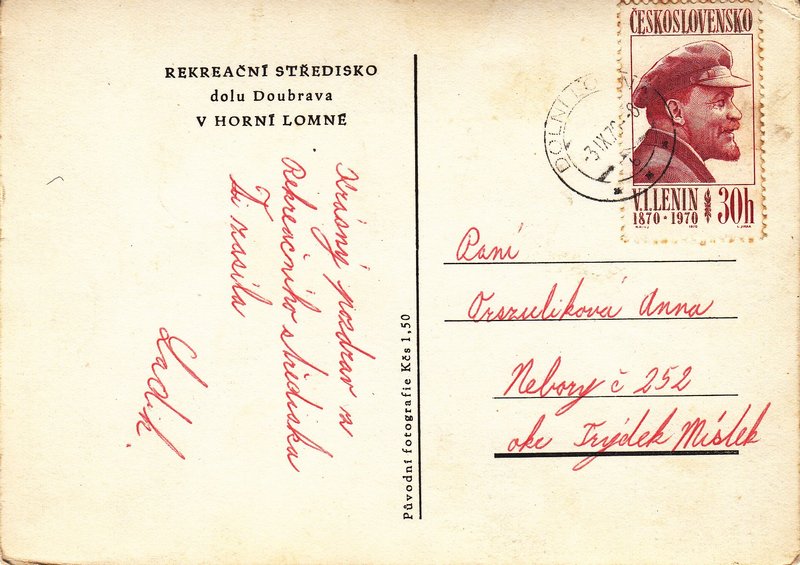 REKREAČNÍ STŘEDISKO
dolu Doubrava
V HORNÍ LOMNÉ
Krásný pozdrav z
Rekreačního střediska
Ti zasílá
Ladik.
Původní fotografie Kčs 1,50
ČESKOSLOVENSKO
V.I. LENIN
1870 • 1970
30h
DOLNÍ LO
-3.IX.7
Paní
Orszuliková Anna
Nebory č 252
okr Frýdek Místek